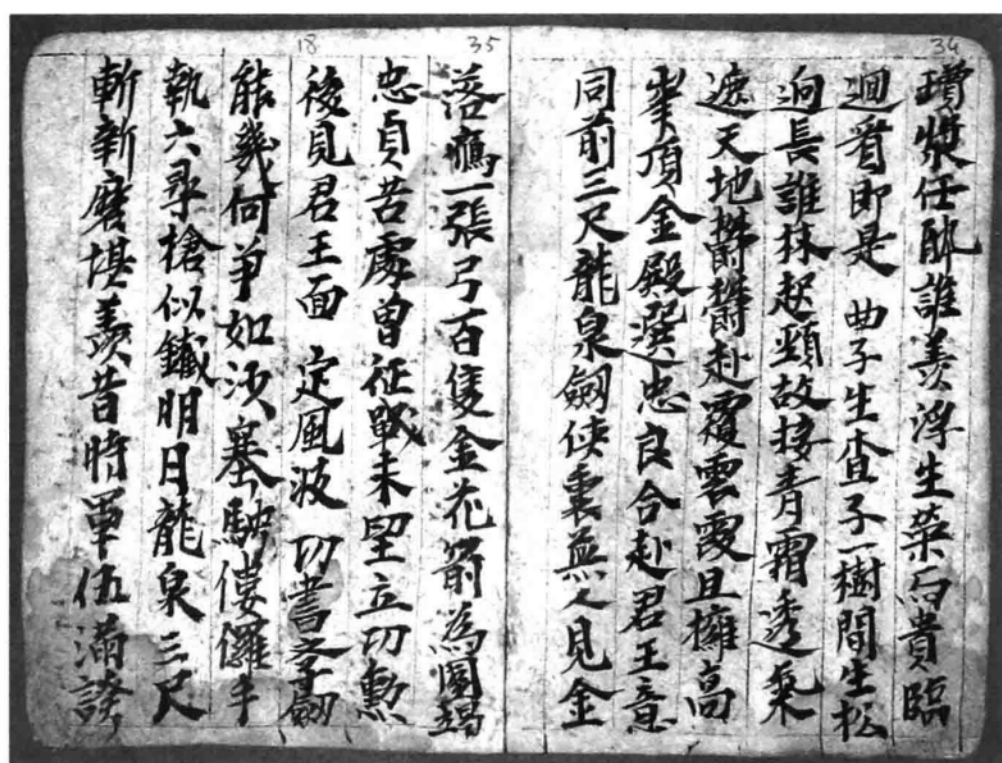 34
瓊漿任飲誰羨浮生榮石貴臨
迴看即是 曲子生查子一樹間生松
迥長誰抹起頸故接青霜透氣
遮天地鬱鬱赴覆雲霞且擁高
峯頂金殿選忠良合赴君王意
同前三尺龍泉劒侠裏無人見金
35
落鴈一張弓百隻金花箭為國竭
忠貞苦處曾征戰未望立功勳
18
後見君王面 定風波 功書子劒
能幾何爭如沙塞騁僂儸手
執六尋槍似鐵明月龍泉三尺
斬新磨堪羡昔時軍伍滿誇